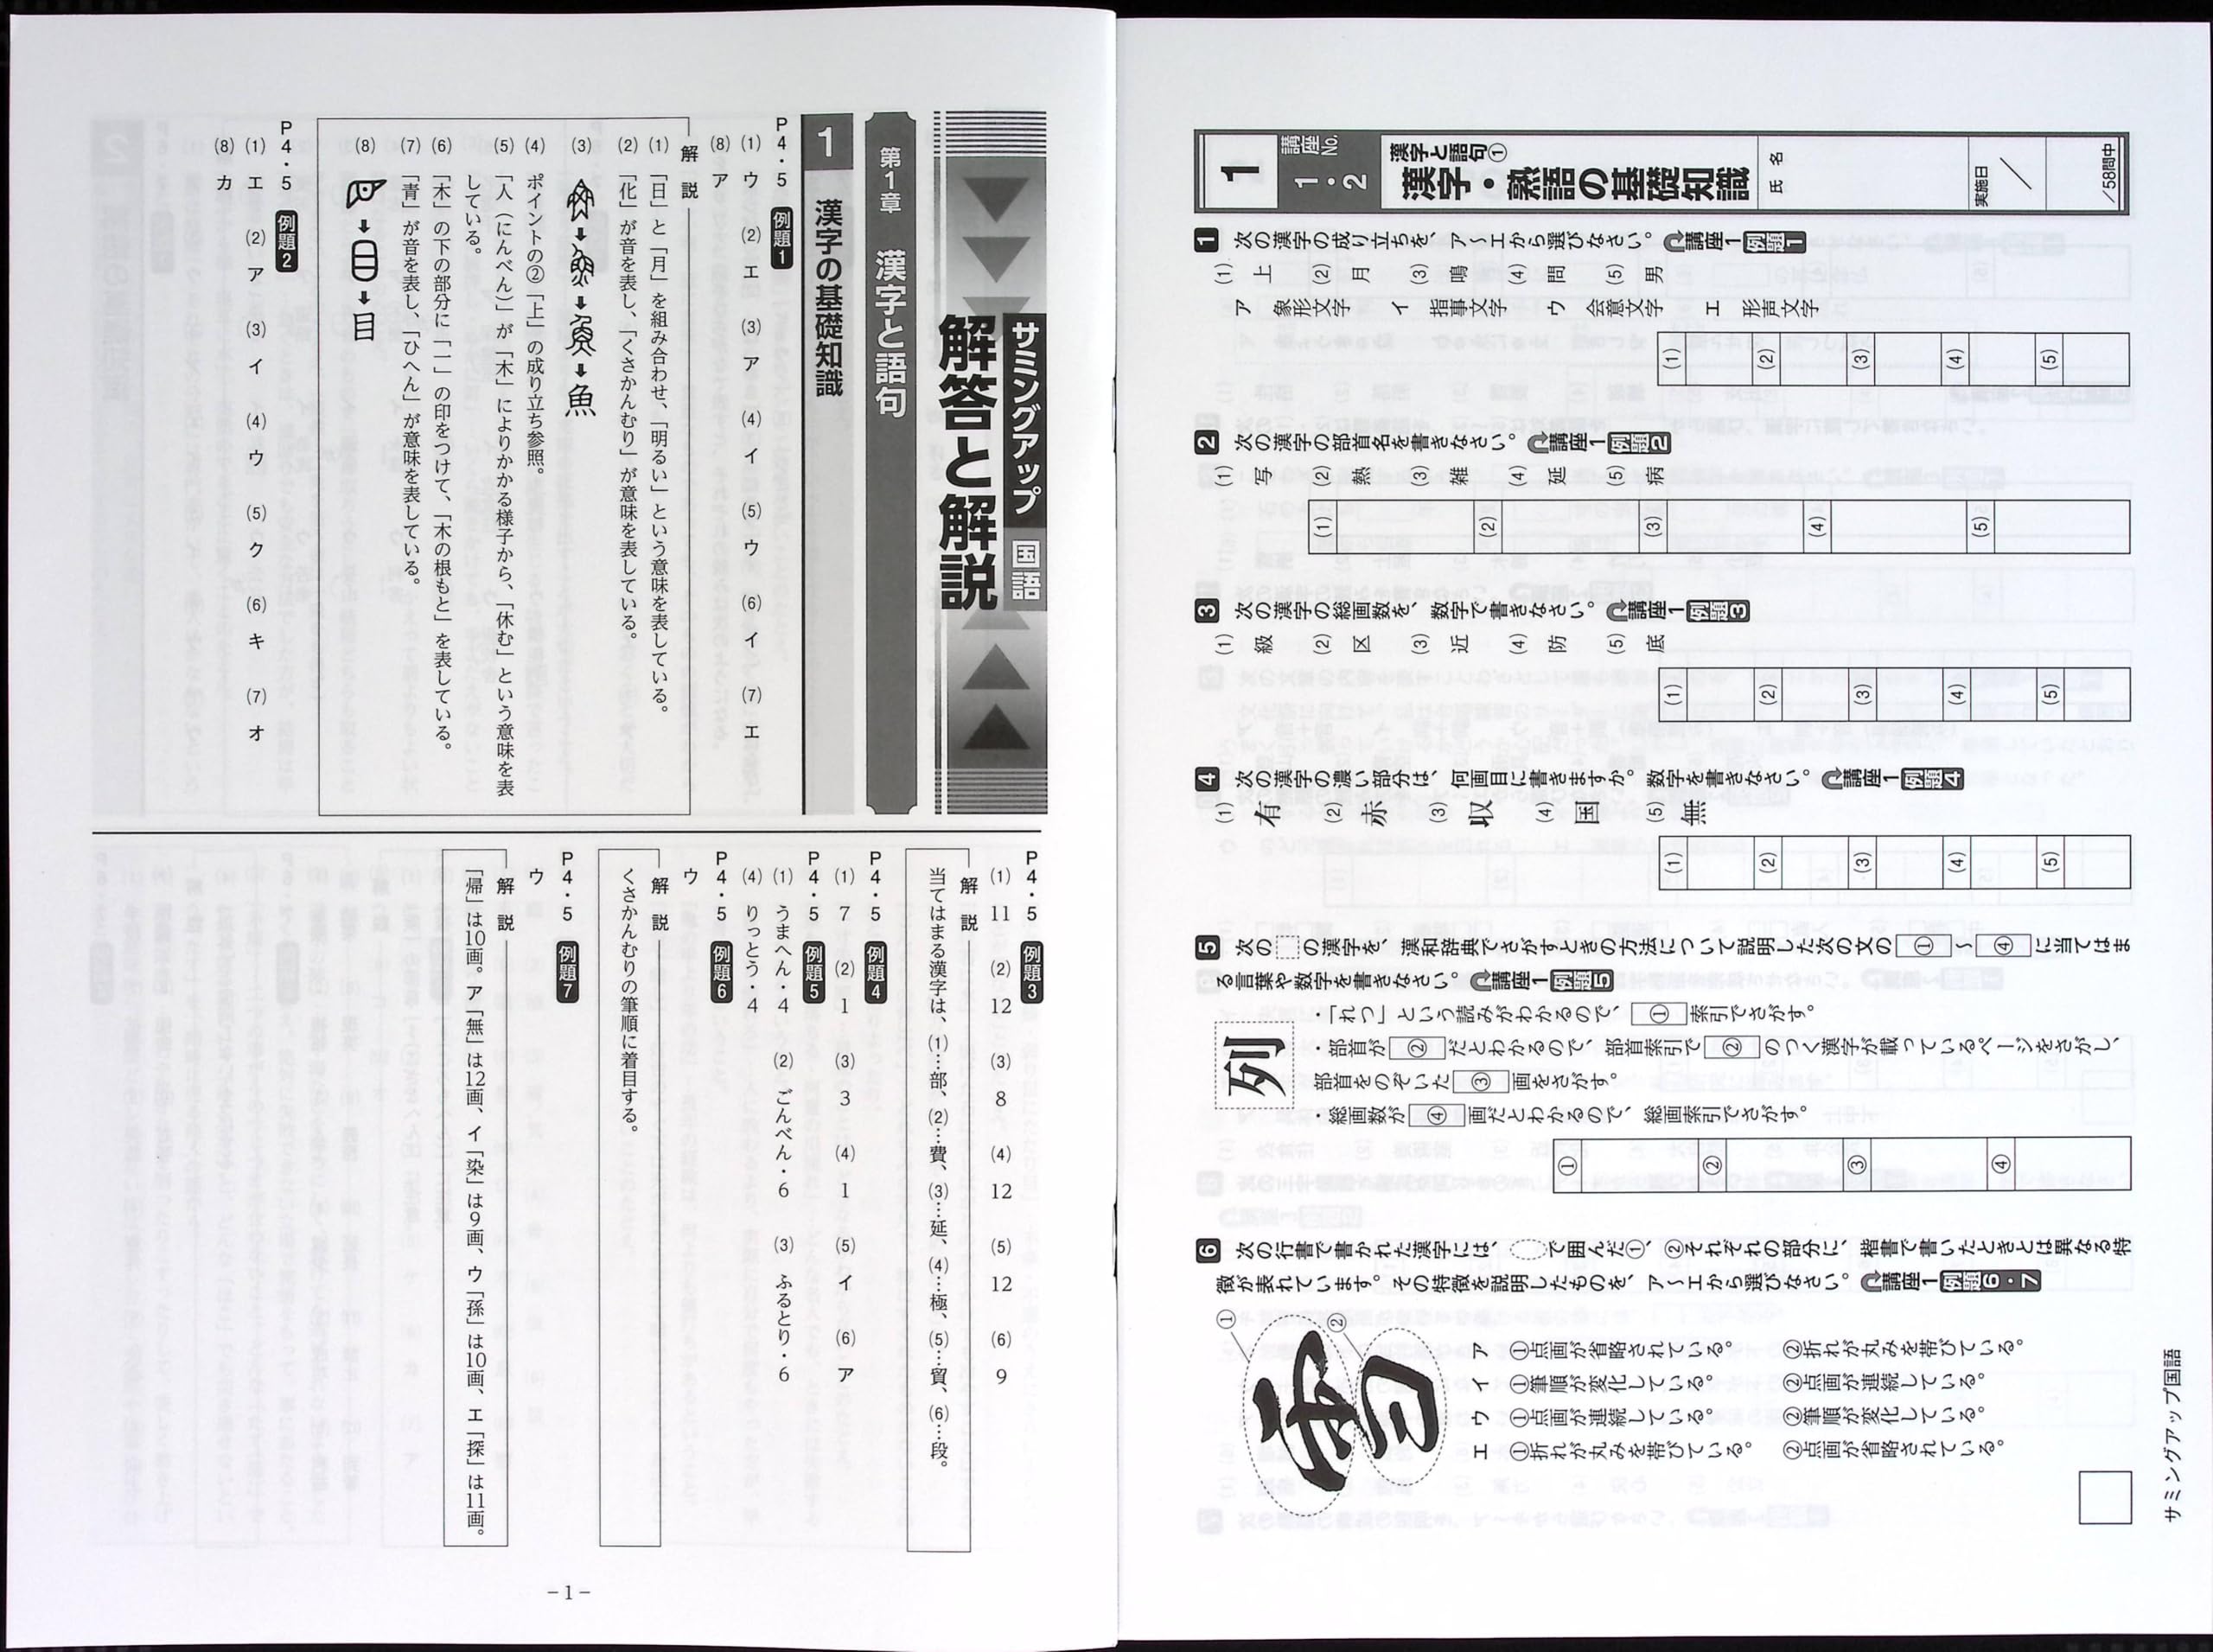 サミングアップ 国語
解答と解説
第1章 漢字と語句
1 漢字の基礎知識
P4・5 例題1
(1) ウ (2) エ (3) ア (4) イ (5) ウ (6) イ (7) エ
(8) ア
解説
(1) 「日」と「月」を組み合わせ、「明るい」という意味を表している。
(2) 「化」が音を表し、「くさかんむり」が意味を表している。
(3) → → → 魚
(4) ポイントの②「上」の成り立ち参照。
(5) 「人（にんべん）」が「木」によりかかる様子から、「休む」という意味を表
している。
(6) 「木」の下の部分に「一」の印をつけて、「木の根もと」を表している。
(7) 「青」が音を表し、「ひへん」が意味を表している。
(8) → → 目
P4・5 例題2
(1) エ (2) ア (3) イ (4) ウ (5) ク (6) キ (7) オ
(8) カ
P4・5 例題3
(1) 11 (2) 12 (3) 8 (4) 12 (5) 12 (6) 9
解説
当てはまる漢字は、(1)…部、(2)…費、(3)…延、(4)…極、(5)…貿、(6)…段。
P4・5 例題4
(1) 7 (2) 1 (3) 3 (4) 1 (5) イ (6) ア
P4・5 例題5
(1) うまへん・4 (2) ごんべん・6 (3) ふるとり・6
(4) りっとう・4
P4・5 例題6
ウ
解説
くさかんむりの筆順に着目する。
P4・5 例題7
ウ
解説
「帰」は10画。ア「無」は12画、イ「染」は9画、ウ「孫」は10画、エ「探」は11画。
−1−
1 講座No. 1・2 漢字と語句① 漢字・熟語の基礎知識 氏名 実施日 ／ ／58問中
1 次の漢字の成り立ちを、ア～エから選びなさい。 講座1 例題1
(1) 上 (2) 月 (3) 鳴 (4) 問 (5) 男
ア 象形文字 イ 指事文字 ウ 会意文字 エ 形声文字
(1) (2) (3) (4) (5)
2 次の漢字の部首名を書きなさい。 講座1 例題2
(1) 写 (2) 熱 (3) 雑 (4) 延 (5) 病
(1) (2) (3) (4) (5)
3 次の漢字の総画数を、数字で書きなさい。 講座1 例題3
(1) 級 (2) 区 (3) 近 (4) 防 (5) 底
(1) (2) (3) (4) (5)
4 次の漢字の濃い部分は、何画目に書きますか。数字を書きなさい。 講座1 例題4
(1) 有 (2) 赤 (3) 収 (4) 国 (5) 無
(1) (2) (3) (4) (5)
5 次の の漢字を、漢和辞典でさがすときの方法について説明した次の文の ① ～ ④ に当てはま
る言葉や数字を書きなさい。 講座1 例題5
列
・「れつ」という読みがわかるので、 ① 索引でさがす。
・部首が ② だとわかるので、部首索引で ② のつく漢字が載っているページをさがし、
部首をのぞいた ③ 画をさがす。
・総画数が ④ 画だとわかるので、総画索引でさがす。
① ② ③ ④
6 次の行書で書かれた漢字には、 で囲んだ①、②それぞれの部分に、楷書で書いたときとは異なる特
徴が表れています。その特徴を説明したものを、ア～エから選びなさい。 講座1 例題6・7
① ②
雪
ア ①点画が省略されている。 ②折れが丸みを帯びている。
イ ①筆順が変化している。 ②点画が連続している。
ウ ①点画が連続している。 ②筆順が変化している。
エ ①折れが丸みを帯びている。 ②点画が省略されている。
サミングアップ国語